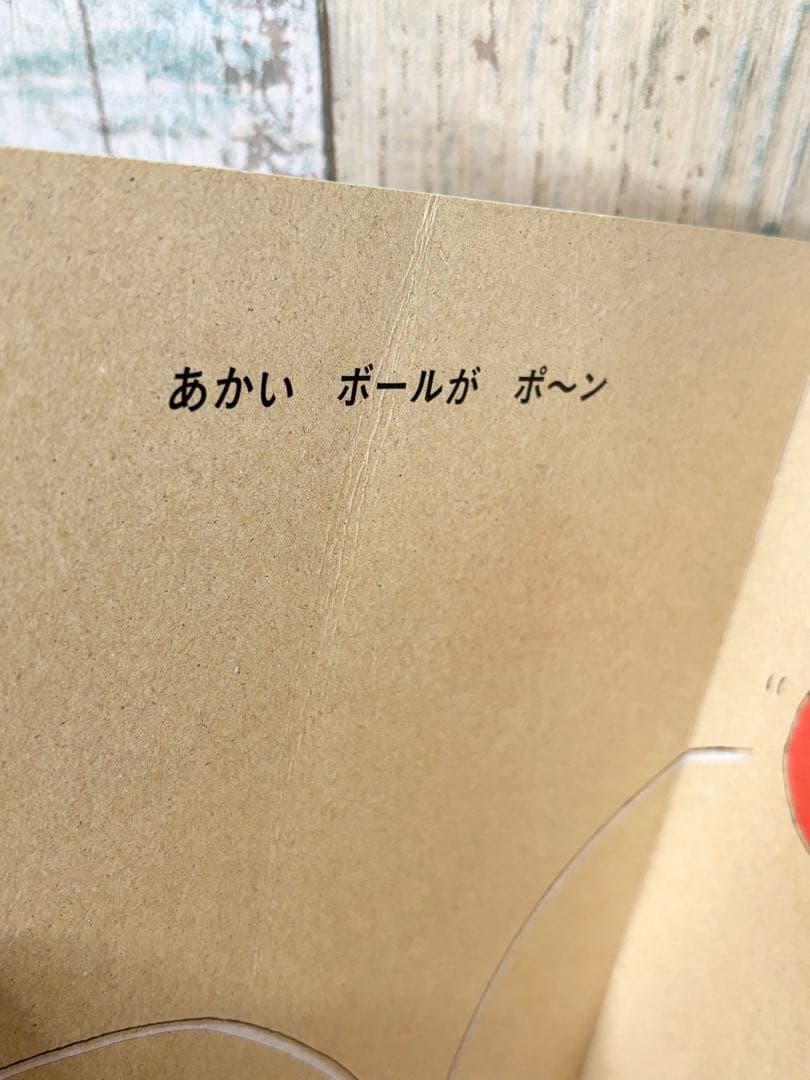 あかい　ボールが　ポ〜ン